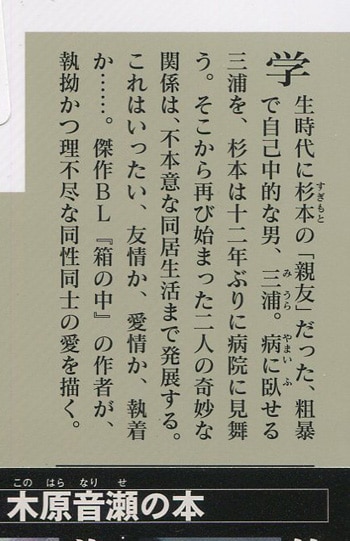 学生時代に杉本の「親友」だった、粗暴
で自己中的な男、三浦。病に臥せる
三浦を、杉本は十二年ぶりに病院に見舞
う。そこから再び始まった二人の奇妙な
関係は、不本意な同居生活まで発展する。
これはいったい、友情か、愛情か、執着
か……。傑作BL『箱の中』の作者が、
執拗かつ理不尽な同性同士の愛を描く。
このはらなりせ
木原音瀬の本